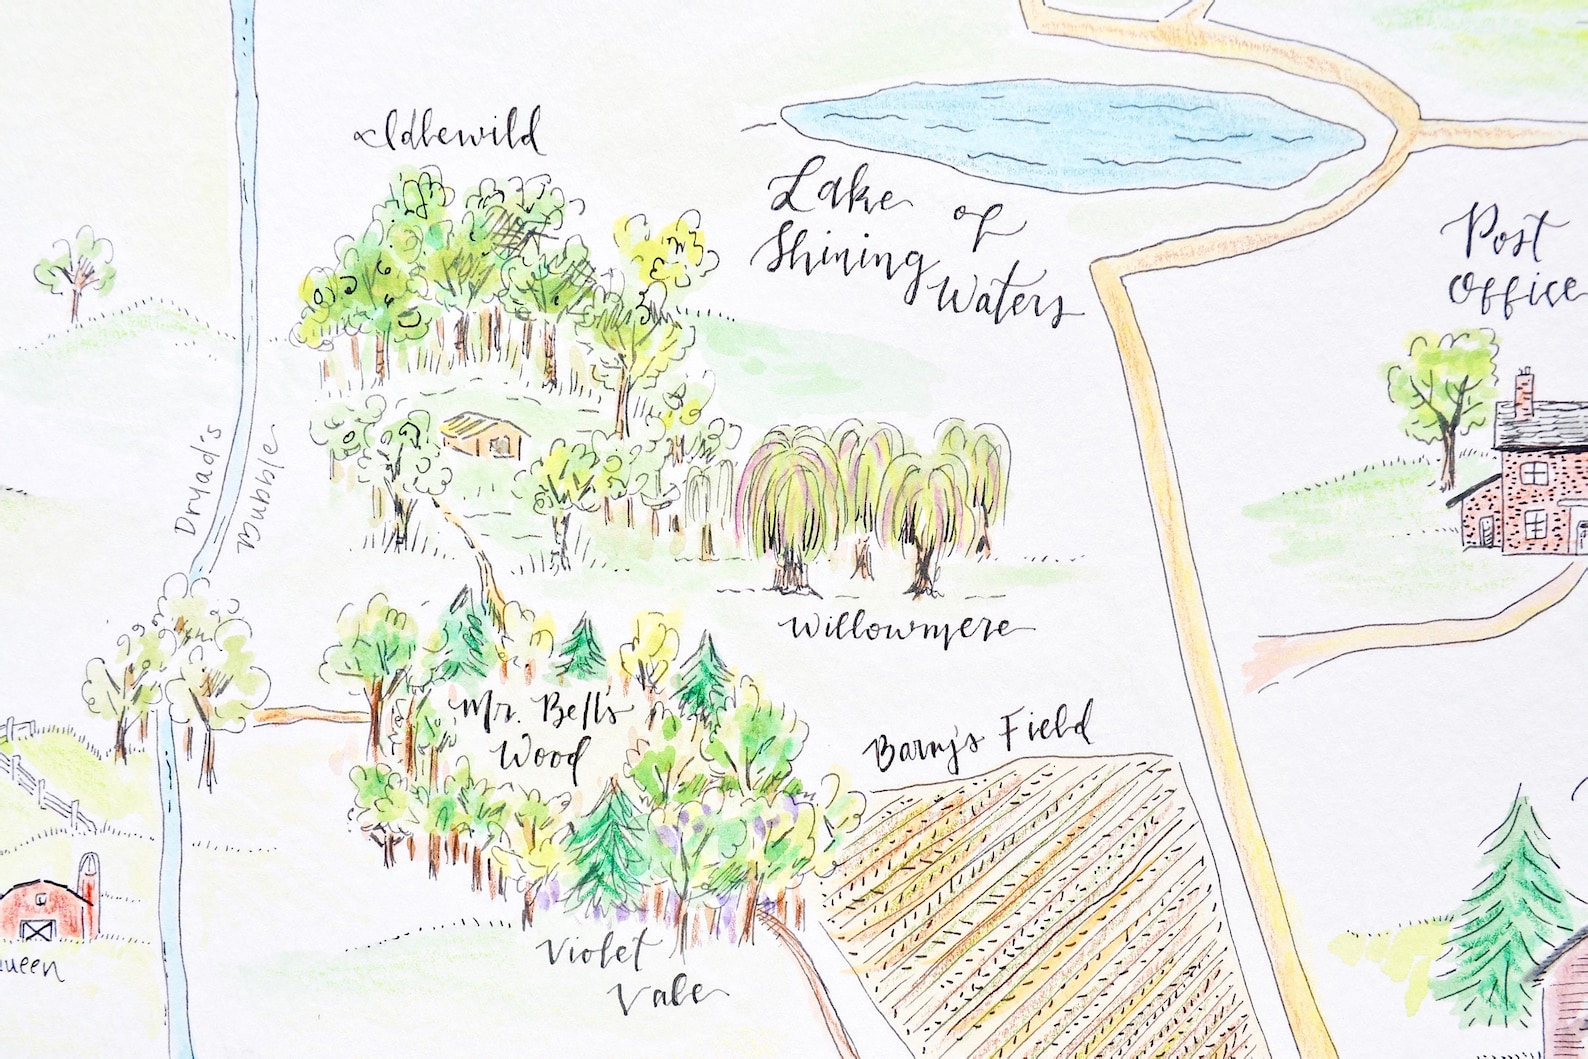 Idlewild
Lake of
Shining
Waters
Post
Office
Dryad's
Bubble
Willowmere
Mr. Bell's
Wood
Barry's Field
Violet
Vale